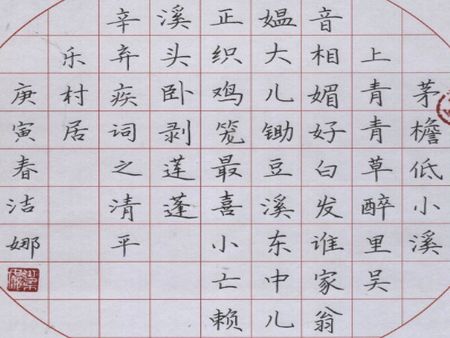 茅檐低小溪
上青青草醉里吴
音相媚好白发谁家翁
媪大儿锄豆溪东中儿
正织鸡笼最喜小亡赖
溪头卧剥莲蓬
辛弃疾词之清平
乐村居
庚寅春洁娜